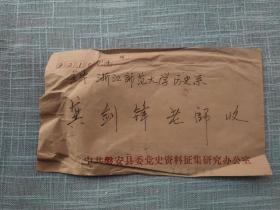 321004
金华 浙江师范大学历史系
龚剑锋老师收
中共磐安县委党史资料征集研究办公室